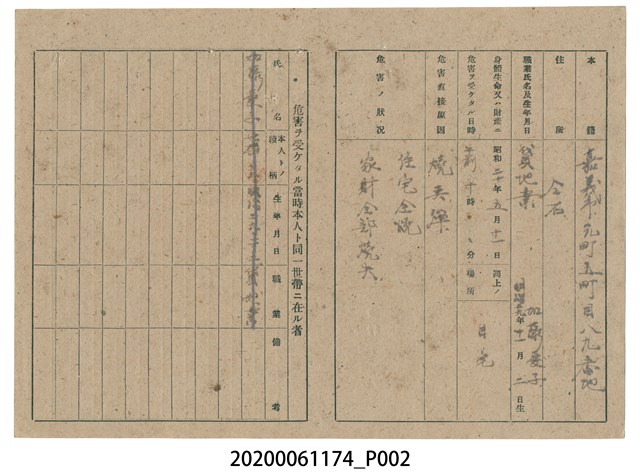 本籍 嘉義市元町五町目八九番地
住所 仝右
職業氏名及生年月日 貸地業 加藤愛子 明治 年十一月二日生
身體生命又ハ財產ニ危害ヲ受ケタル日時 昭和二十年五月十一日 午前十時 分 同上ノ場所 自宅
危害直接原因 燒夷彈
危害ノ狀況 住宅全燒
家財全部燒失
危害ヲ受ケタル當時本人ト同一世帶ニ在ル者
氏名 本人トノ續柄 生年月日 職業 備考
20200061174_P002